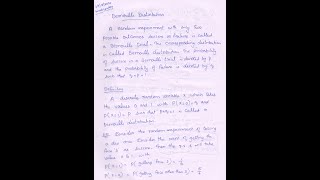 Bernoulli Distribution
A random experiment with only two
possible outcomes success or failure is called
a Bernoulli trial. The corresponding distribution
is called Bernoulli distribution. The probability
of success in a Bernoulli trial is denoted by p
and the probability of failure is denoted by q
such that q = 1 -
Definition
A discrete random variable x which takes
the values 0 and 1 with P(x=0)=q and
P(x=1) = p such that p+q=1 is called a
Bernoulli distribution.
Consider the random experiment of
a die once. Consider the event of getting the
as success then the can take
value
P(x=1) = P( getting
P(x=0) = P( getting